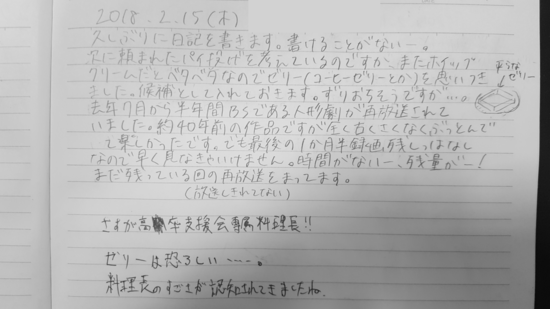 2018.2.15(木)
久しぶりに日記を書きます。書けることがないー。
次に頼まれたパイ投げを考えているのですが、またホイップ
クリームだとベタベタなのでゼリー(コーヒーゼリーとか)を思いつき
ました。候補として入れておきます。ずりおちそうですが…。
平らな
ゼリー
去年7月から半年間BSである人形劇が再放送されて
いました。約40年前の作品ですが全く古くさくなくぶっとんで
て楽しかったです。でも最後の1か月半録画残しっぱなし
なので早く見なきゃいけません。時間がないー、残量がー!
まだ残っている回の再放送をまってます。
(放送しきれてない)
さすが高 卒支援会専属料理長!!
ゼリーは恐ろしい……。
料理長のすごさが認知されてきましたね。